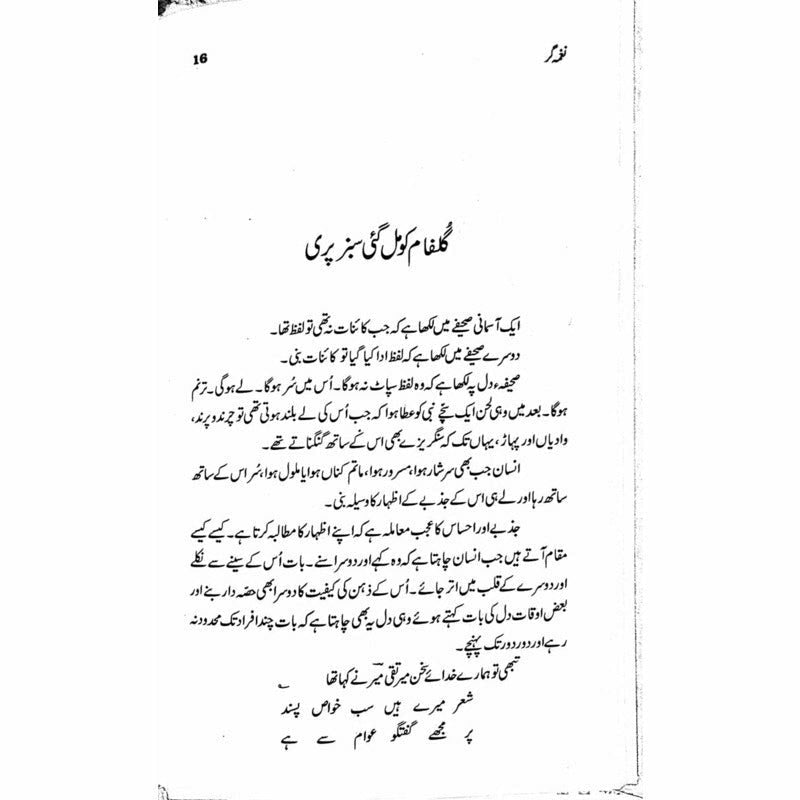 نغمہ گر
16
گلفام کو مل گئی سبز پری
ایک آسمانی صحیفے میں لکھا ہے کہ جب کائنات نہ تھی تو لفظ تھا۔
دوسرے صحیفے میں لکھا ہے کہ لفظ ادا کیا گیا تو کائنات بنی۔
صحیفہء دل پہ لکھا ہے کہ وہ لفظ سپاٹ نہ ہوگا۔ اُس میں سُر ہوگا۔ لے ہوگی۔ ترنم
ہوگا۔ بعد میں وہی لحن ایک سچّے نبی کو عطا ہوا کہ جب اُس کی لے بلند ہوتی تھی تو چرند و پرند،
وادیاں اور پہاڑ، یہاں تک کہ سنگریزے بھی اس کے ساتھ گنگناتے تھے۔
انسان جب بھی سرشار ہوا، مسرور ہوا، ماتم کناں ہوا یا ملول ہوا، سُر اس کے ساتھ
ساتھ رہا اور لے ہی اس کے جذبے کے اظہار کا وسیلہ بنی۔
جذبے اور احساس کا عجب معاملہ ہے کہ اپنے اظہار کا مطالبہ کرتا ہے۔ کیسے کیسے
مقام آتے ہیں جب انسان چاہتا ہے کہ وہ کہے اور دوسرا سنے۔ بات اُس کے سینے سے نکلے
اور دوسرے کے قلب میں اتر جائے۔ اُس کے ذہن کی کیفیت کا دوسرا بھی حصّہ دار بنے اور
بعض اوقات دل کی بات کہتے ہوئے وہی دل یہ بھی چاہتا ہے کہ بات چند افراد تک محدود نہ
رہے اور دور دور تک پہنچے۔
تبھی تو ہمارے خدائے سخن میر تقی میرؔ نے کہا تھا
شعر میرے ہیں سب خواص پسند
پر مجھے گفتگو عوام سے ہے